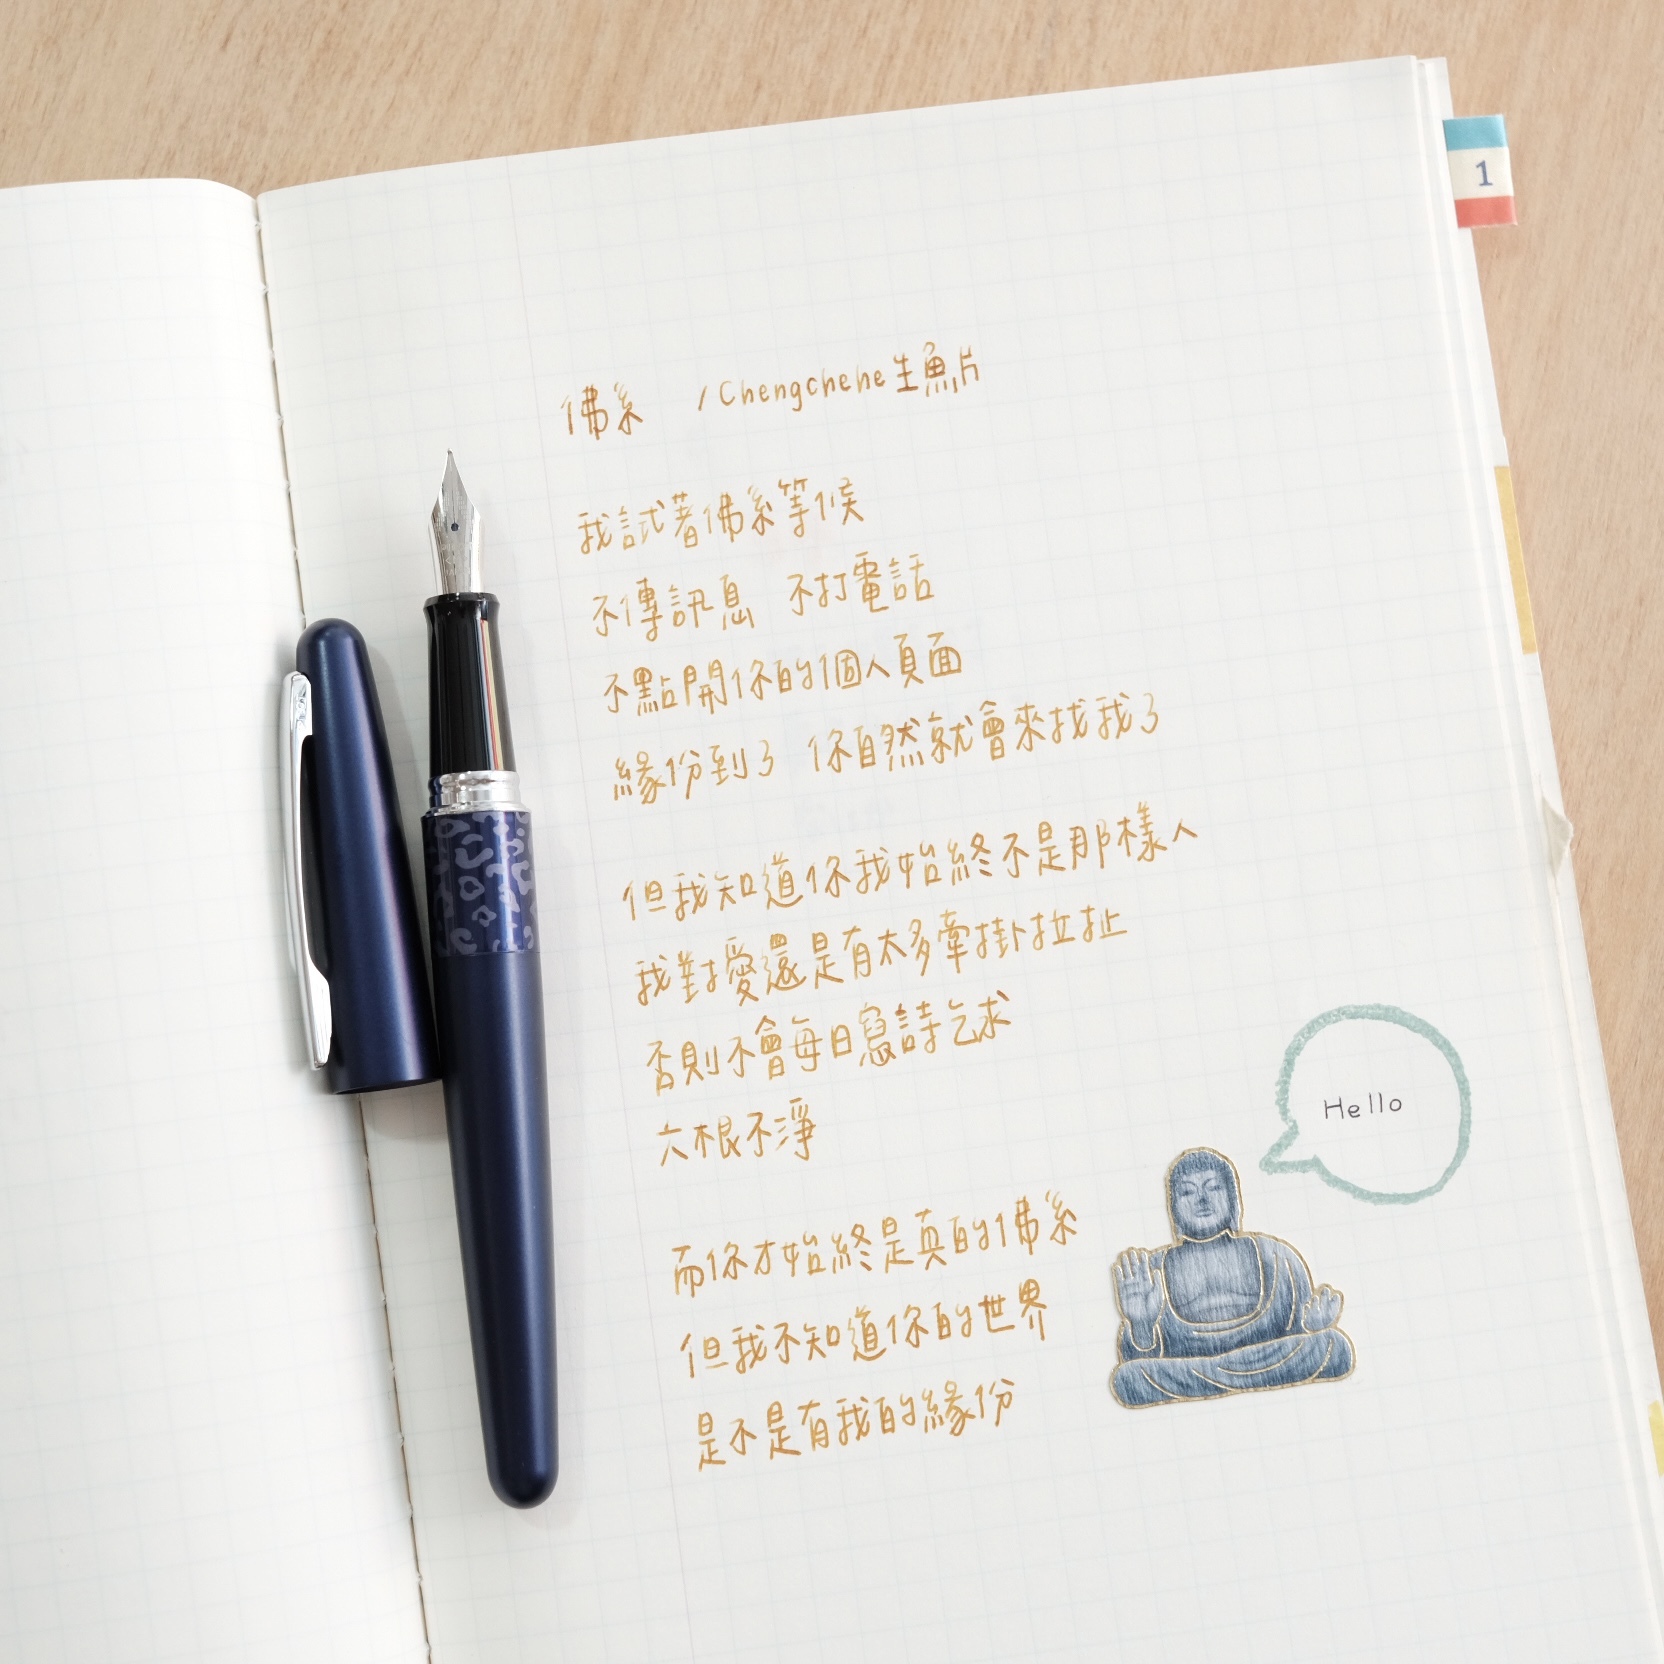 1
佛系 /Chengchehe生魚片
我試著佛系等候
不傳訊息 不打電話
不點開你的個人頁面
緣份到了 你自然就會來找我了
但我知道你我始終不是那樣人
我對愛還是有太多牽掛拉扯
否則不會每日寫詩乞求
六根不淨
而你才始終是真的佛系
但我不知道你的世界
是不是有我的緣份
Hello